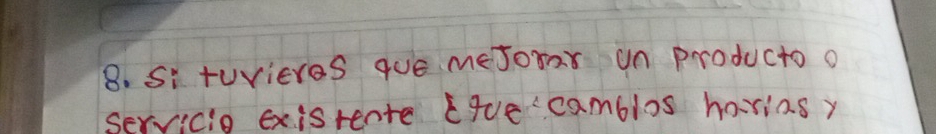 8. Si tuvieras que meJorar un producto o
servicio existente ¿que cambios harías y